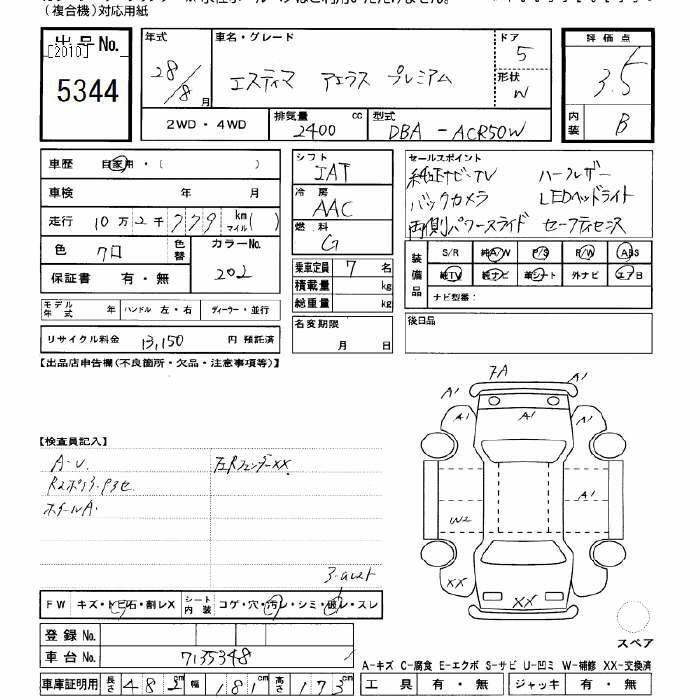 (複合機)対応用紙
出品No.
[2010]
5344
年式
28/8月
車名・グレード
エスティマ アエラス プレミアム
ドア
5
形状
W
評価点
3.5
内装
B
2WD・4WD
排気量
2400 cc
型式
DBA - ACR50W
車歴 自家用・( )
車検 年 月
走行 10万2千779 km マイル( )
色 クロ
色替
カラーNo.
202
保証書 有・無
モデル年式 年 ハンドル 左・右 ディーラー・並行
リサイクル料金 13,150 円 預託済
シフト
IAT
冷房
AAC
燃料
G
乗車定員 7 名
積載量 kg
総重量 kg
名変期限
月 日
セールスポイント
純正ナビ・TV ハーフレザー
バックカメラ LEDヘッドライト
両側パワースライド セーフティセンス
装備品
S/R 純A/W P/S P/W ABS
純TV 純ナビ 革シート 外ナビ エアB
ナビ型番:
後日品
【出品店申告欄(不良箇所・欠品・注意事項等)】
【検査員記入】
A-U.
左Rフェンダーxx
ホイールA.
7A
A1
A1
A1
A1
A1
A1
W2
XX
XX
XX
スペア
FW キズ・トビ石・割レX シート内装 コゲ・穴・汚レ・シミ・破レ・スレ
登録No.
車台No. 7135348
車庫証明用 長さ 482cm 幅 181cm 高さ 173
A-キズ C-腐食 E-エクボ S-サビ U-凹ミ W-補修 XX-交換済
工具 有・無 ジャッキ 有・無